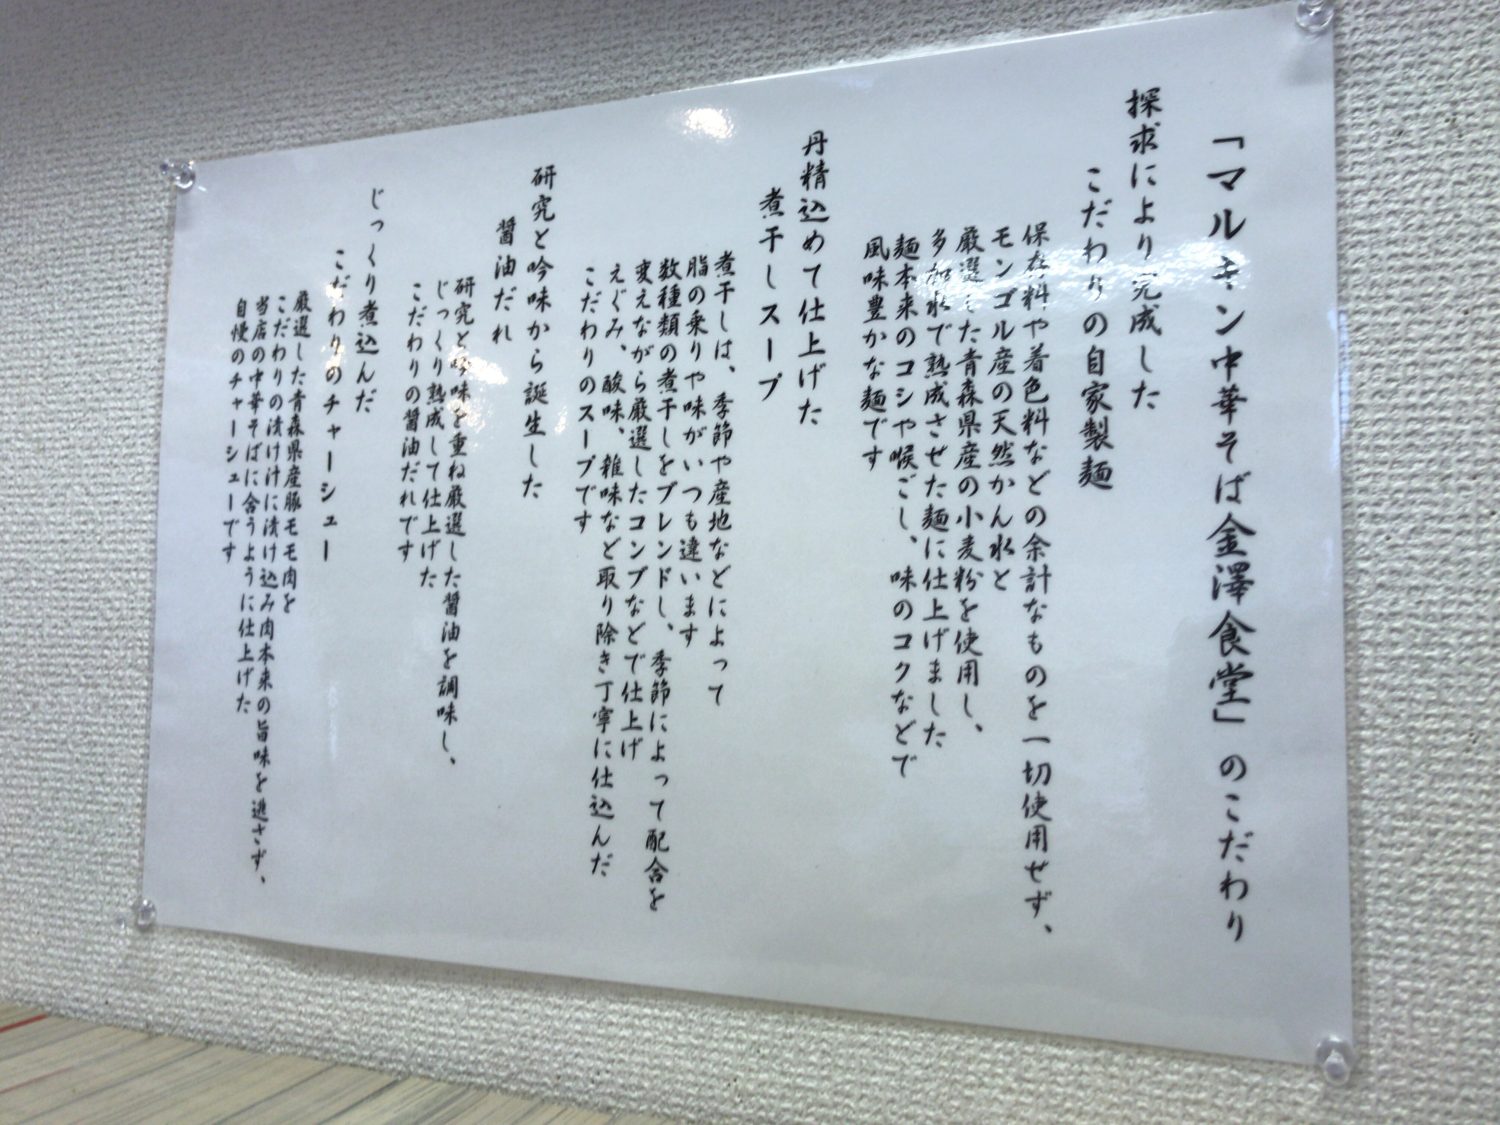 「マルキン中華そば金澤食堂」のこだわり
探求により完成した
こだわりの自家製麺
保存料や着色料などの余計なものを一切使用せず、
モンゴル産の天然かん水と
厳選した青森県産の小麦粉を使用し、
多加水で熟成させた麺に仕上げました
麺本来のコシや喉ごし、味のコクなどで
風味豊かな麺です
丹精込めて仕上げた
煮干しスープ
煮干しは、季節や産地などによって
脂の乗りや味がいつも違います
数種類の煮干しをブレンドし、季節によって配合を
変えながら厳選したコンブなどで仕上げ
えぐみ、酸味、雑味など取り除き丁寧に仕込んだ
こだわりのスープです
研究と吟味から誕生した
醤油だれ
研究と吟味を重ね厳選した醤油を調味し、
じっくり熟成して仕上げた
こだわりの醤油だれです
じっくり煮込んだ
こだわりのチャーシュー
厳選した青森県産豚モモ肉を
こだわりの漬け汁に漬け込み肉本来の旨味を逃さず、
当店の中華そばに合うように仕上げた
自慢のチャーシューです